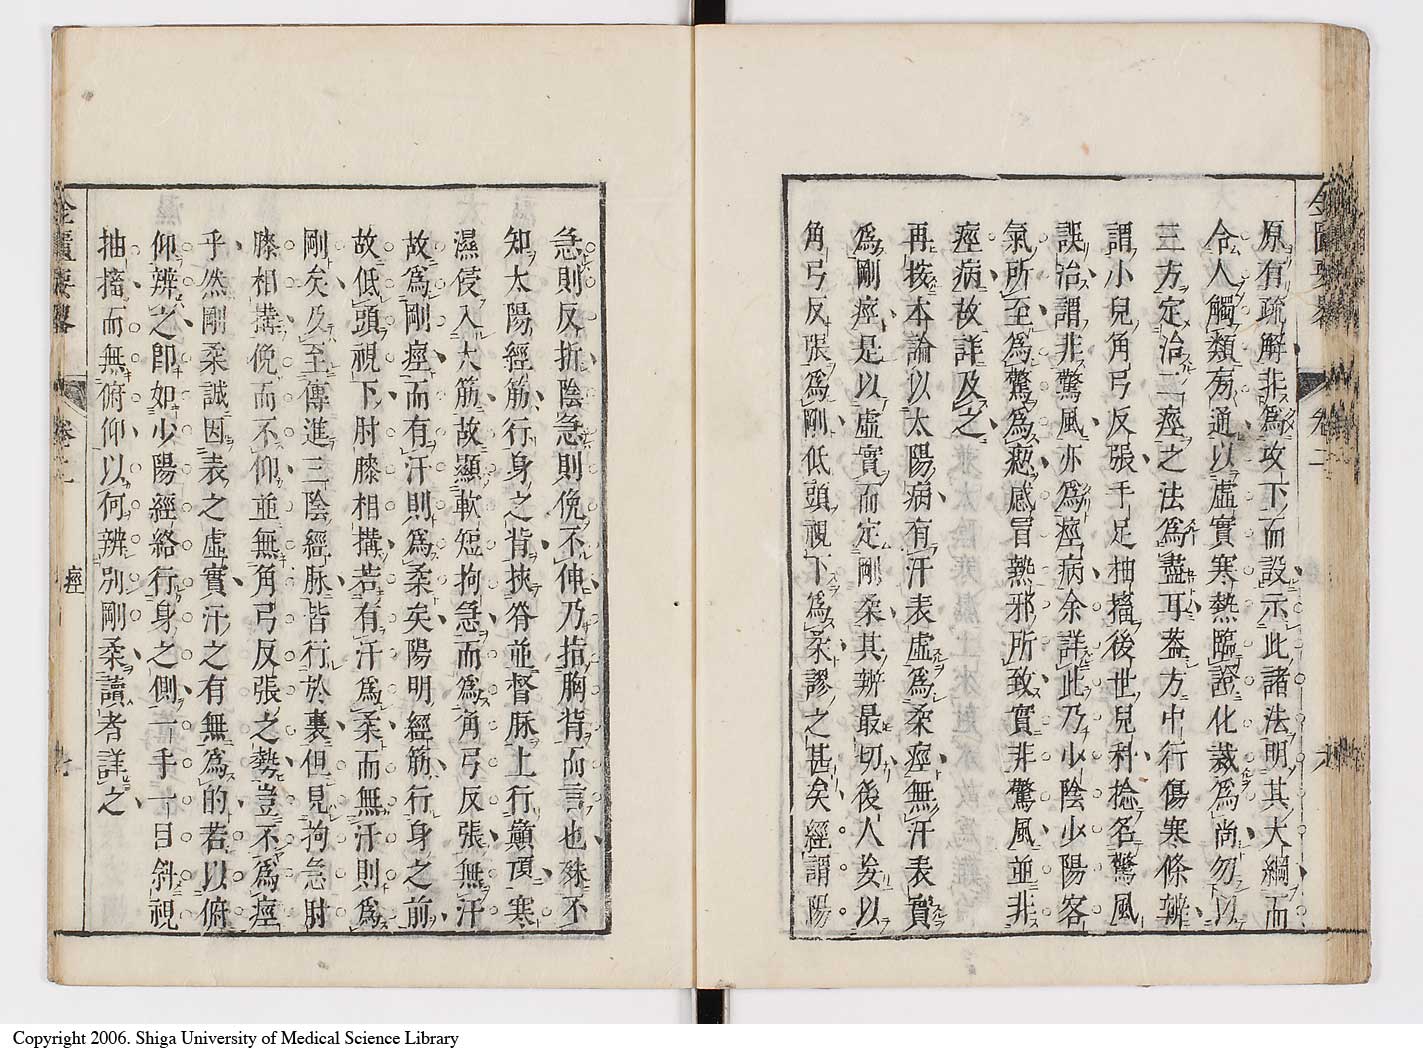 原有疏解非為攻下而設示此諸法明其大綱而
令人觸類旁通以虛實寒熱臨證化裁為尚勿以
三方定治二痙之法為盡耳蓋方中行傷寒條辨
謂小兒角弓反張手足抽搐後世兒科捻名驚風
誤治謂非驚風亦為痙病余詳此乃少陰少陽客
氣所至為驚為瘛感冒熱邪所致實非驚風並非
痙病故詳及之
再按本論以太陽病有汗表虛為柔痙無汗表實
為剛痙是以虛實而定剛柔其辨最切後人妄以
角弓反張為剛低頭視下為柔謬之甚矣經謂陽
急則反折陰急則俛不伸乃指胸背而言也殊不
知太陽經筋行身之背挾脊並督脉上行巔頂寒
濕侵入大筋故顯軟短拘急而為角弓反張無汗
故為剛痙而有汗則為柔矣陽明經筋行身之前
故低頭視下肘膝相搆若有汗為柔而無汗則為
剛矣及至傳進三陰經脉皆行於裏但見拘急肘
膝相搆俛而不仰並無角弓反張之勢豈不為痙
乎然剛柔誠因表之虛實汗之有無為的若以俯
仰辨之即如少陽經絡行身之側一手一目斜視
抽搐而無俯仰以何辨別剛柔讀者詳之
金匱要畧
卷二
痙
Copyright 2006. Shiga University of Medical Science Library